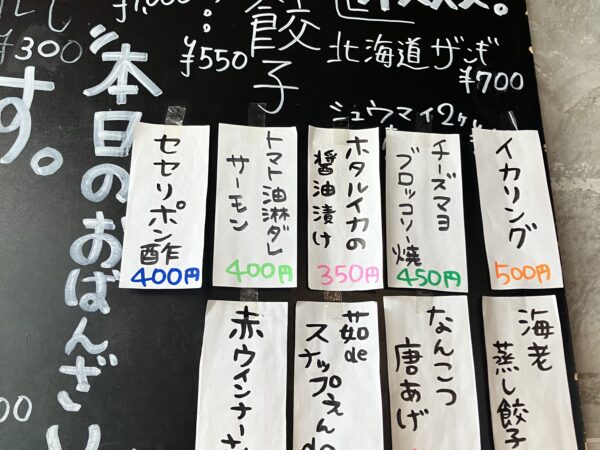 ¥300
餃子
¥550
北海道ザンギ
¥700
シュウマイ2ヶ
本日のおばんざい
す。
イカリング
500円
チーズマヨ
ブロッコリー焼
450円
ホタルイカの
醤油漬け
350円
トマト油淋ダレ
サーモン
400円
セセリポン酢
400円
海老
蒸し餃子
なんこつ
唐あげ
茹de
スナップえん
赤ウインナー